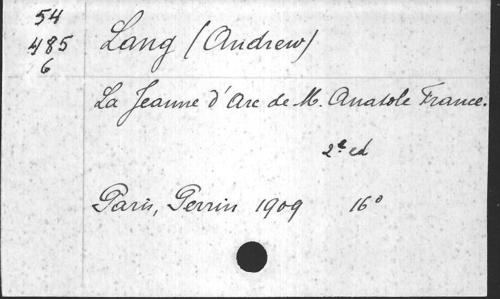 54
485
6
Lang (Andrew)
La Jeanne d'Arc de M. Anatole France.
2e ed
Paris, Perrin 1909 16°